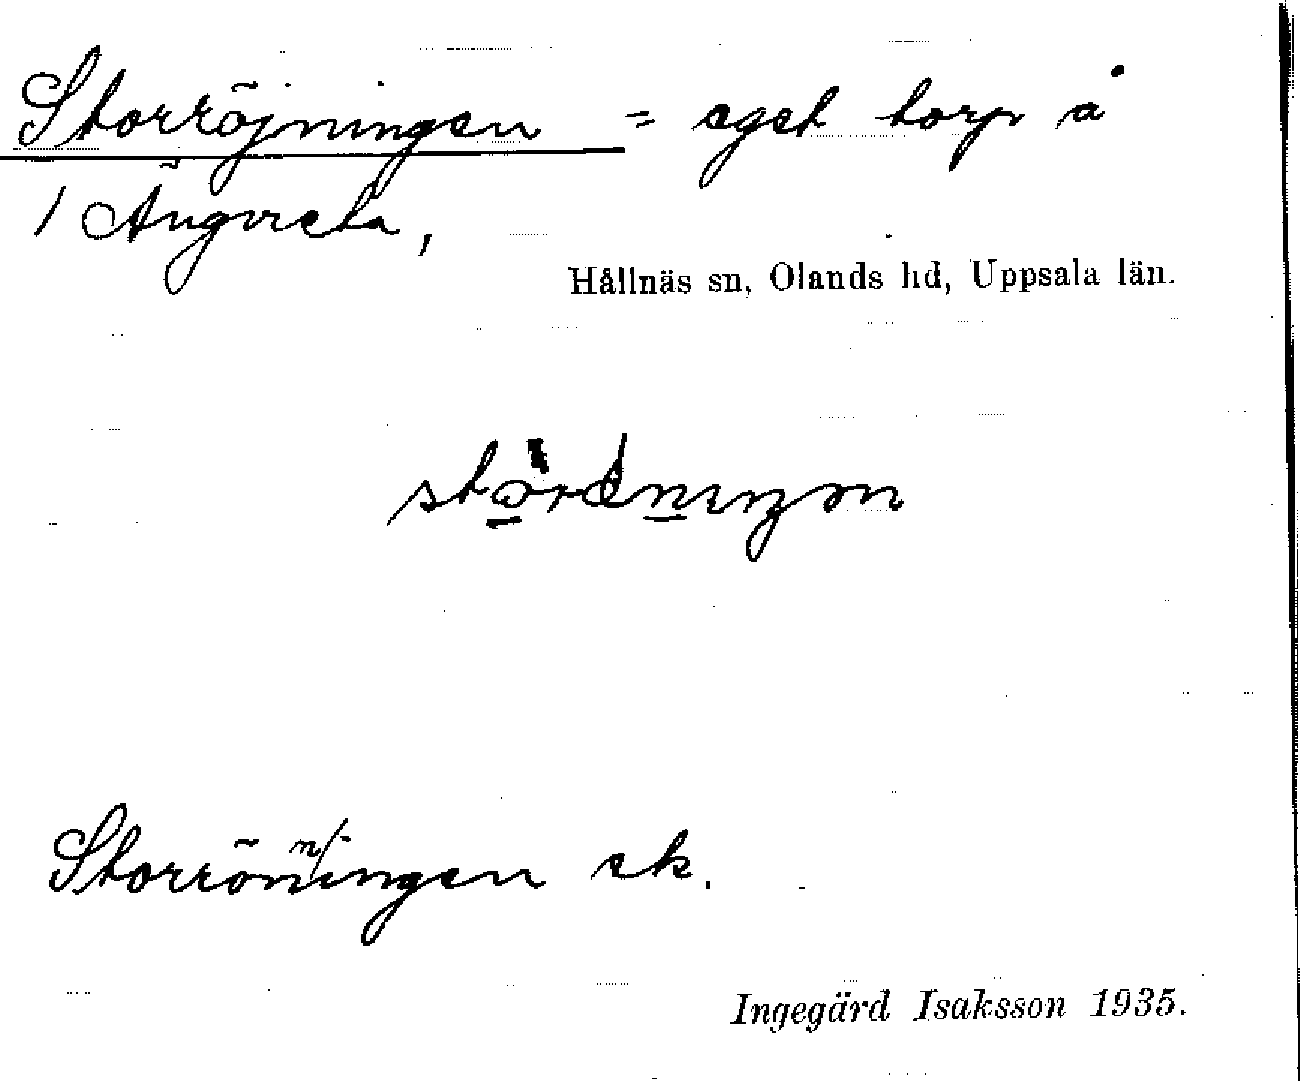 Storröjningen = eget torp å
1 Ängvreta,
Hållnäs sn, Olands hd, Uppsala län.
Storrönningen ek.
Ingegärd Isaksson 1935.